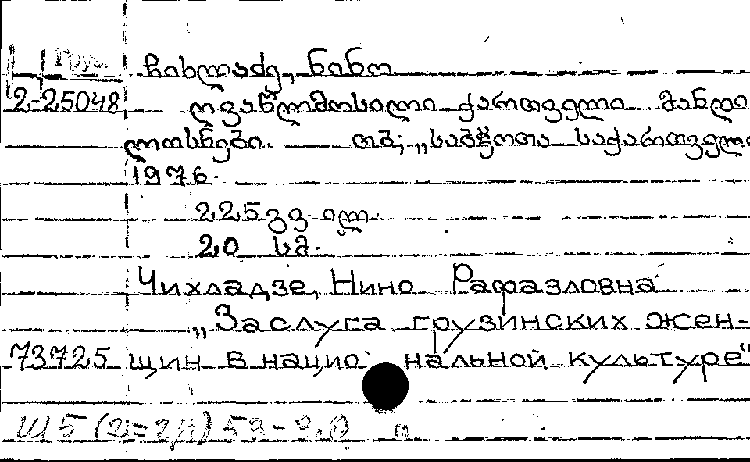 ჩიხლაძე, ნინო
2-25048 ღვაწლმოსილი ქართველი მანდი
ლოსნები. თბ; „საბჭოთა საქართველო
1976.
225 გვ ილ.
20 სმ.
Чихладзе, Нино Рафаэловна
„Заслуга грузинских жен-
73725 щин в нацио нальной культуре"